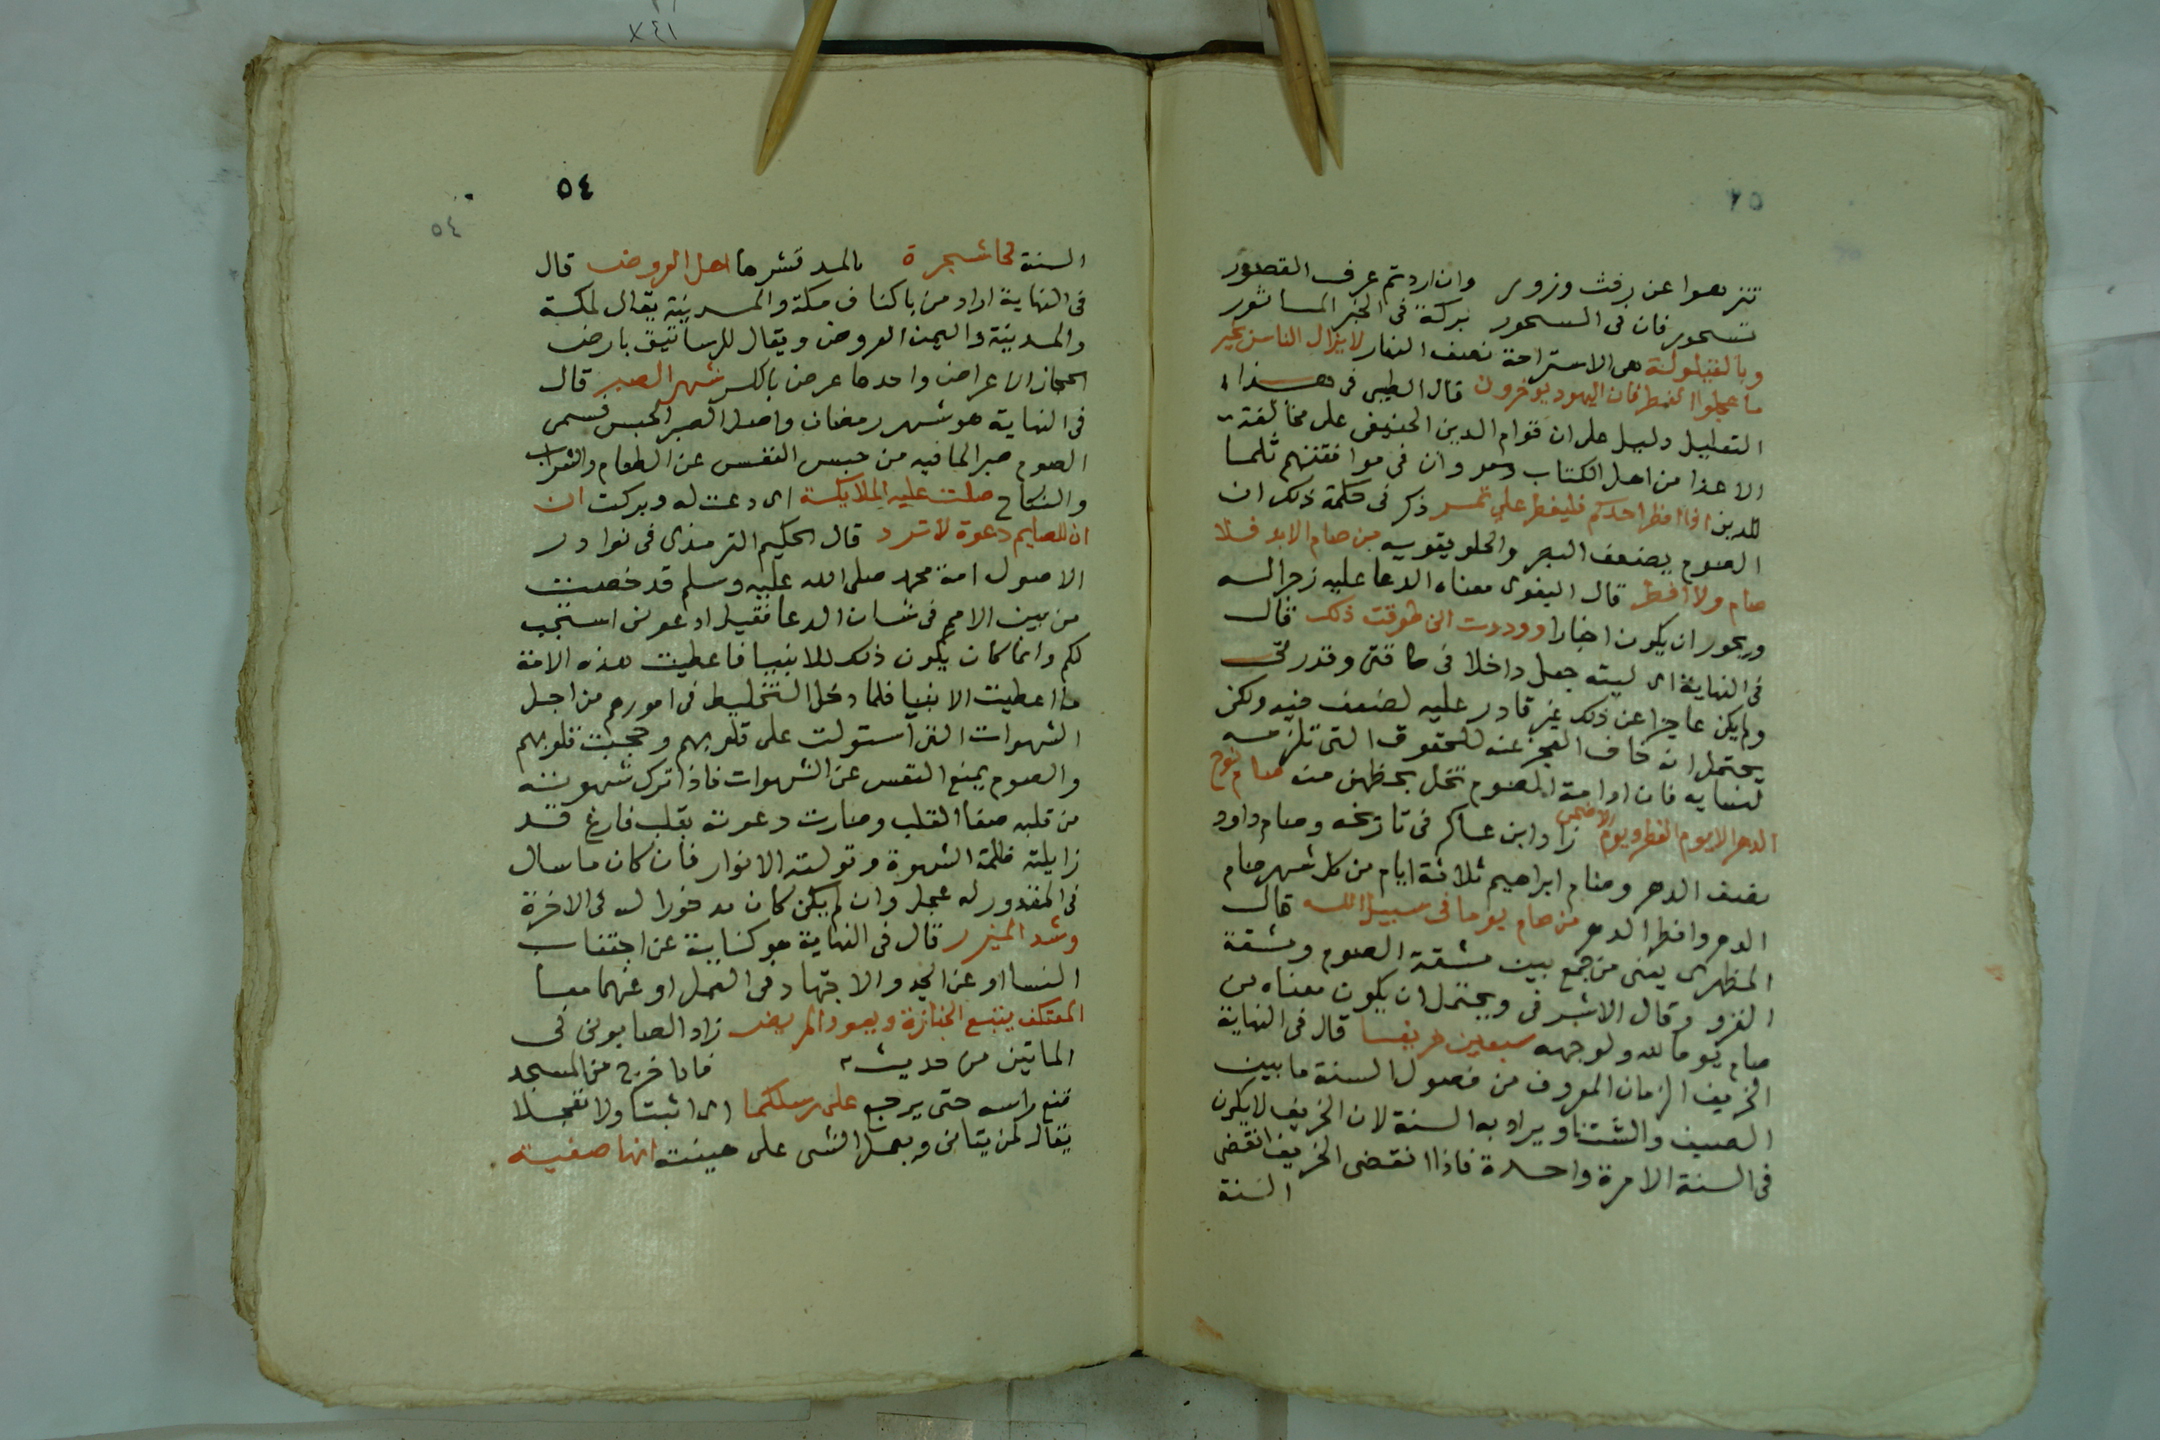 تنزهوا عن رفث وزور وان اردتم عرف القصور
تسحروا فان في السحور بركة في الخبر الماثور
وبالقيلولة هي الاستراحة نصف النهار لا يزال الناس بخير
ما عجلوا الفطر فان اليهود يوخرون قال الطيبي في هذا
التعليل دليل على ان قوام الدين الحنيفي على مخالفة
الاعدا من اهل الكتاب وان في موافقتهم ثلما
للدين اذا افطر احدكم فليفطر على تمر ذكر في حكمة ذلك ان
الصوم يضعف البصر والحلو يقويه من صام الابد فلا
صام ولا افطر قال البغوي معناه الدعا عليه زجرا له
ويجوز ان يكون اخبارا ووددت اني طوقت ذلك قال
في النهاية اى ليته جعل داخلا في طاقتي وقدرتي
ولم يكن عاجزا عن ذلك غير قادر عليه لضعف فيه ولكن
يحتمل انه خاف العجز عنه للحقوق التي تلزمه
لنسايه فان ادامة الصوم تخل بحظهن منه صام نوح
الدهر الا يوم الفطر ويوم الاضحى زاد ابن عساكر في تاريخه وصام داود
نصف الدهر وصام ابراهيم ثلاثة ايام من كل شهر صام
الدهر وافطر الدهر من صام يوما في سبيل الله قال
المظهرى يعني من جمع بين مشقة الصوم ومشقة
الغزو وقال الاشرفي ويحتمل ان يكون معناه من
صام يوما لله ولوجهه سبعين خريفا قال في النهاية
الخريف الزمان المعروف من فصول السنة ما بين
الصيف والشتا ويراد به السنة لان الخريف لا يكون
في السنة الا مرة واحدة فاذا انقضى الخريف انقضى
السنة
٥٤
٥٤
السنة لحا شجرة بالمد قشرها اهل العروض قال
في النهاية اراد من باكناف مكة والمدينة يقال لمكة
والمدينة واليمن العروض ويقال للرساتيق بارض
الحجاز الاعراض واحدها عرض بالكسر شهر الصبر قال
في النهاية هو شهر رمضان واصل الصبر الحبس فسمى
الصوم صبرا لما فيه من حبس النفس عن الطعام والشراب
والنكاح صلت عليه الملايكة اى دعت له وبركت ان
ان للصايم دعوة لا ترد قال الحكيم الترمذي في نوادر
الاصول امة محمد صلى الله عليه وسلم قد خصت
من بين الامم في شان الدعا فقيل ادعوني استجب
لكم وانما كان يكون ذلك للانبيا فاعطيت هذه الامة
ما اعطيت الانبيا فلما دخل التخليط في امورهم من اجل
الشهوات التي استولت على قلوبهم وحجبت قلوبهم
والصوم يمنع النفس عن الشهوات فاذا ترك شهوته
من قلبه صفا القلب وصارت دعوته بقلب فارغ قد
زايلته ظلمة الشهوة وتولته الانوار فان كان ما سال
في المقدور له عجل وان لم يكن كان مدخورا له في الاخرة
وشد الميزر قال في النهاية هو كناية عن اجتناب
النسا او عن الجد والاجتهاد في العمل او عنهما معا
المعتكف يتبع الجنازة ويعود المريض زاد الصابوني في
الماتين من حديث فاذا خرج من المسجد
قنع راسه حتى يرجع على رسلكما اى اثبتا ولا تعجلا
يقال لمن يتانى ويعمل الشى على هينته انها صفية